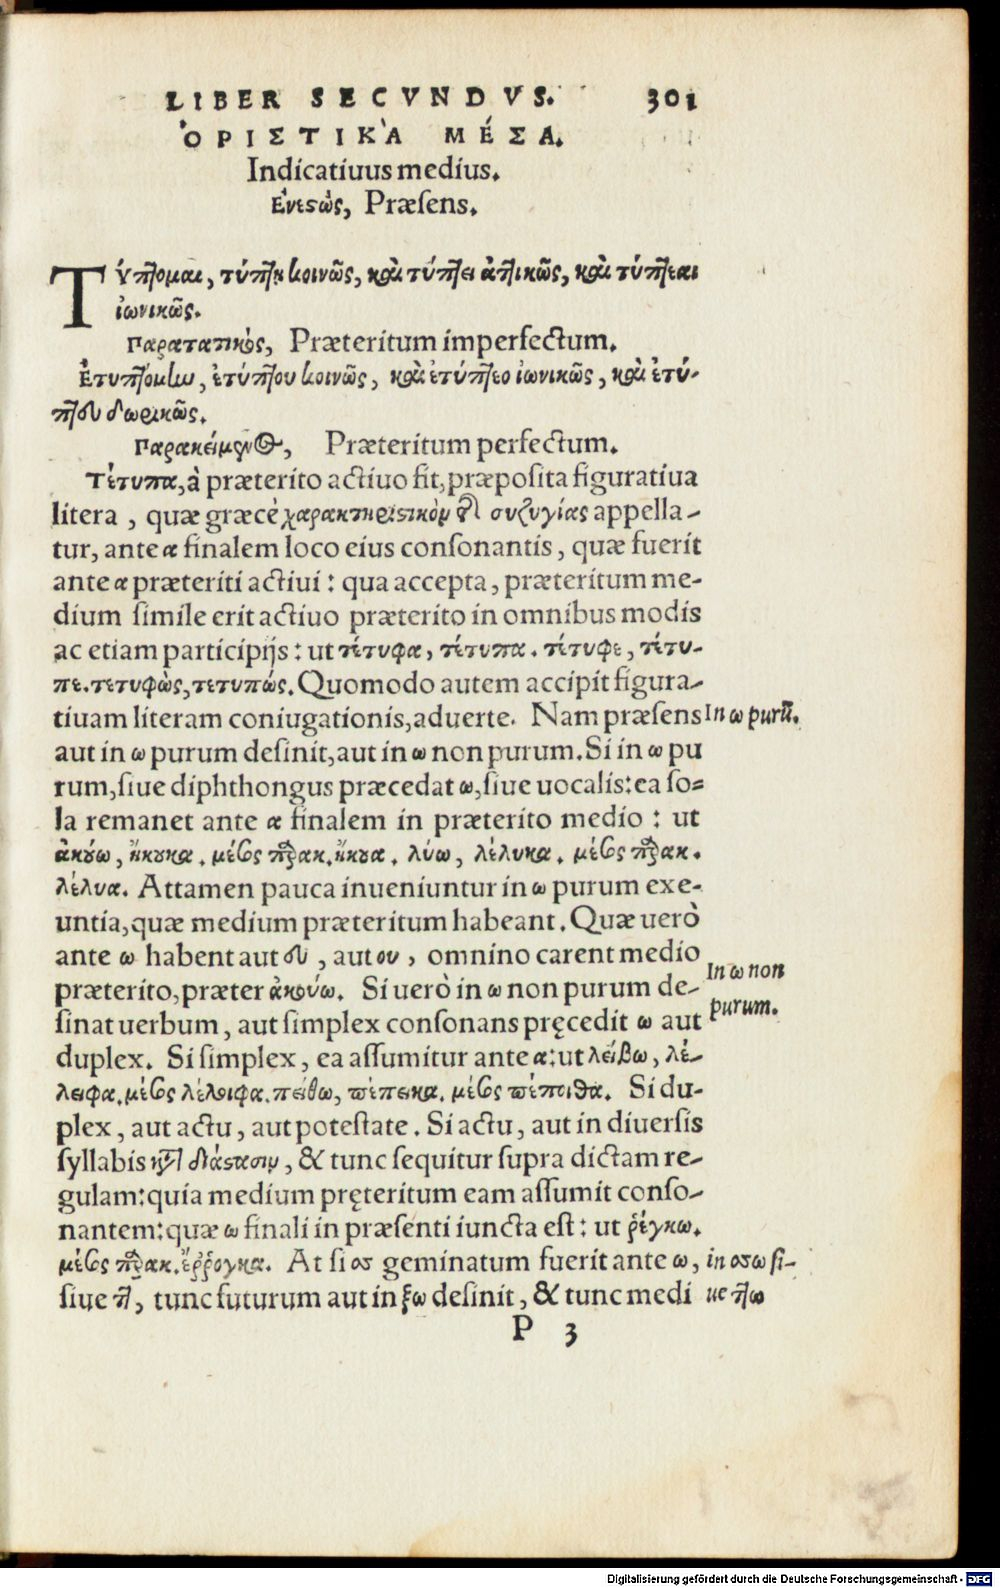 LIBER SECVNDVS. 301
ὉΡΙΣΤΙΚᾺ ΜΈΣΑ.
Indicatiuus medius.
Ενεϛὼς, Præſens.
Τύπτομαι, τύπτῃ κοινῶς, καὶ τύπτει ἀττικῶς, καὶ τύπτεαι
ἰωνικῶς.
Παρατατικὸς, Præteritum imperfectum.
Ἐτυπτόμην, ἐτύπτου κοινῶς, καὶ ἐτύπτεο ἰωνικῶς, καὶ ἐτύ-
πτευ δωρικῶς.
Παρακείμενος, Præteritum perfectum.
Τέτυπα, à præterito actiuo fit, præpoſita figuratiua
litera, quæ græcè χαρακτηριϛικὸν τῆς συζυγίας appella-
tur, ante α finalem loco eius conſonantis, quæ fuerit
ante α præteriti actiui: qua accepta, præteritum me-
dium ſimile erit actiuo præterito in omnibus modis
ac etiam participijs: ut τέτυφα, τέτυπα. τέτυφε, τέτυ-
πε. τετυφὼς, τετυπώς. Quomodo autem accipit figura-
tiuam literam coniugationis, aduerte. Nam præſens In ω purũ.
aut in ω purum deſinit, aut in ω non purum. Si in ω pu
rum, ſiue diphthongus præcedat ω, ſiue uocalis: ea ſo-
la remanet ante α finalem in præterito medio: ut
ἀκούω, ἤκουκα. μέσος παρακ. ἤκουα. λύω, λέλυκα. μέσος παρακ.
λέλυα. Attamen pauca inueniuntur in ω purum exe-
untia, quæ medium præteritum habeant. Quæ uerò
ante ω habent aut ευ, aut ου, omnino carent medio
præterito, præter ἀκούω. Si uerò in ω non purum de- In ω non
ſinat uerbum, aut ſimplex conſonans pręcedit ω aut purum.
duplex. Si ſimplex, ea aſſumitur ante α: ut λείβω, λέ-
λειφα. μέσος λέλοιφα. πείθω, πέπεικα. μέσος πέποιθα. Si du-
plex, aut actu, aut poteſtate. Si actu, aut in diuerſis
syllabis κατὰ διάϛασιν, & tunc ſequitur ſupra dictam re-
gulam: quia medium pręteritum eam aſſumit conſo-
nantem: quæ ω finali in præſenti iuncta eſt: ut ῥέγκω.
μέσος παρακ. ἔῤῥογκα. At ſi σσ geminatum fuerit ante ω, in σσω ſi-
ſiue ττ, tunc futurum aut in ξω deſinit, & tunc medi ue ττω
P 3
Digitalisierung gefördert durch die Deutsche Forschungsgemeinschaft - DFG